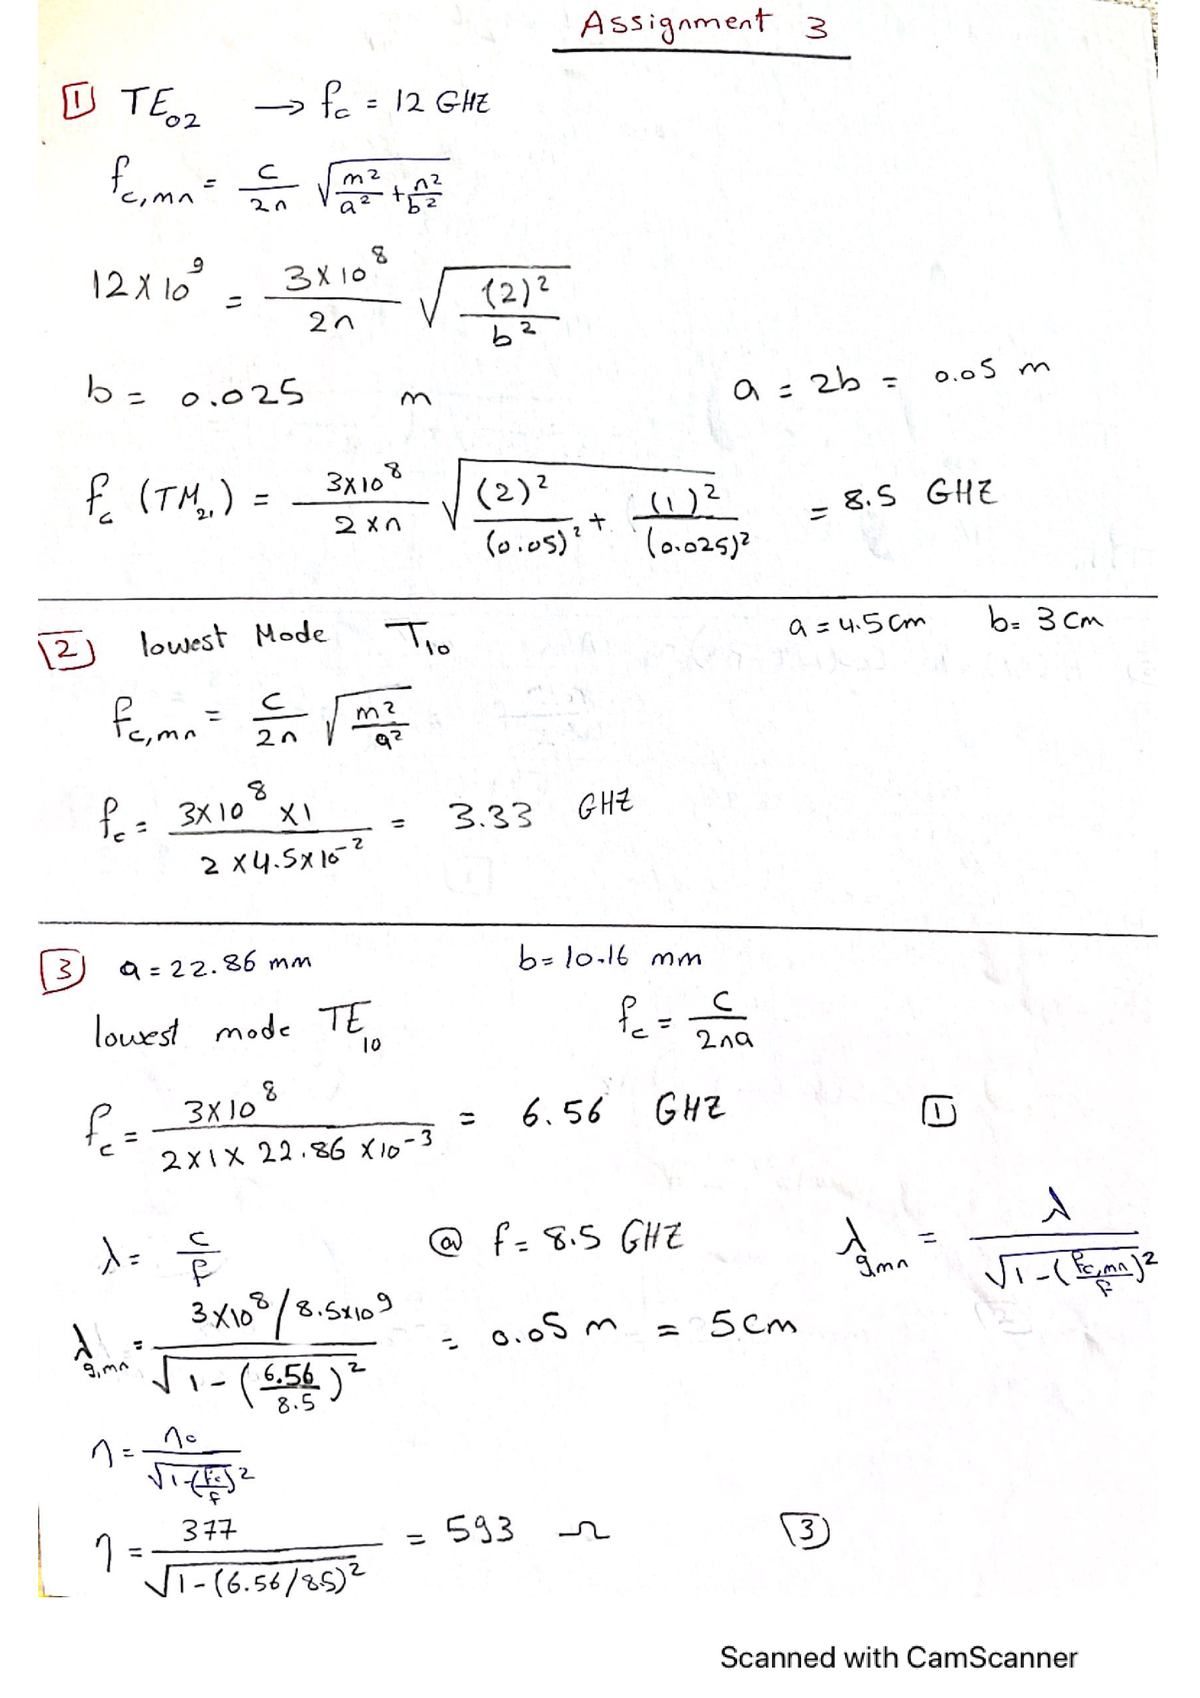 Assignment 3
1 TE02 → fc = 12 GHZ
fc,mn = c/2n √(m²/a² + n²/b²)
12 X 10⁹ = 3X10⁸/2n √((2)²/b²)
b = 0.025 m a = 2b = 0.05 m
fc (TM21) = 3X10⁸/2xn √((2)²/(0.05)² + (1)²/(0.025)²) = 8.5 GHZ
2 lowest Mode T10 a = 4.5 cm b= 3 cm
fc,mn = c/2n √(m²/a²)
fc = 3X10⁸ X1/2 X4.5X10⁻² = 3.33 GHZ
3 a = 22.86 mm b= 10.16 mm
lowest mode TE10 fc = c/2na
fc = 3X10⁸/2X1X 22.86 X10⁻³ = 6.56 GHZ 1
λ = c/f @ f= 8.5 GHZ λg,mn = λ/√(1-(fc,mn/f)²)
λg,mn = 3X10⁸/8.5x10⁹/√(1-(6.56/8.5)²) = 0.05 m = 5 cm
η = η0/√(1-(fc/f)²)
η = 377/√(1-(6.56/8.5)²) = 593 Ω 3
Scanned with CamScanner